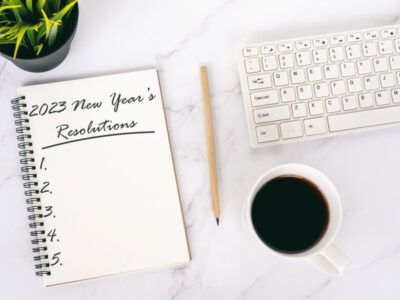 2023 New Year's
Resolutions
1.
2.
3.
4.
5.